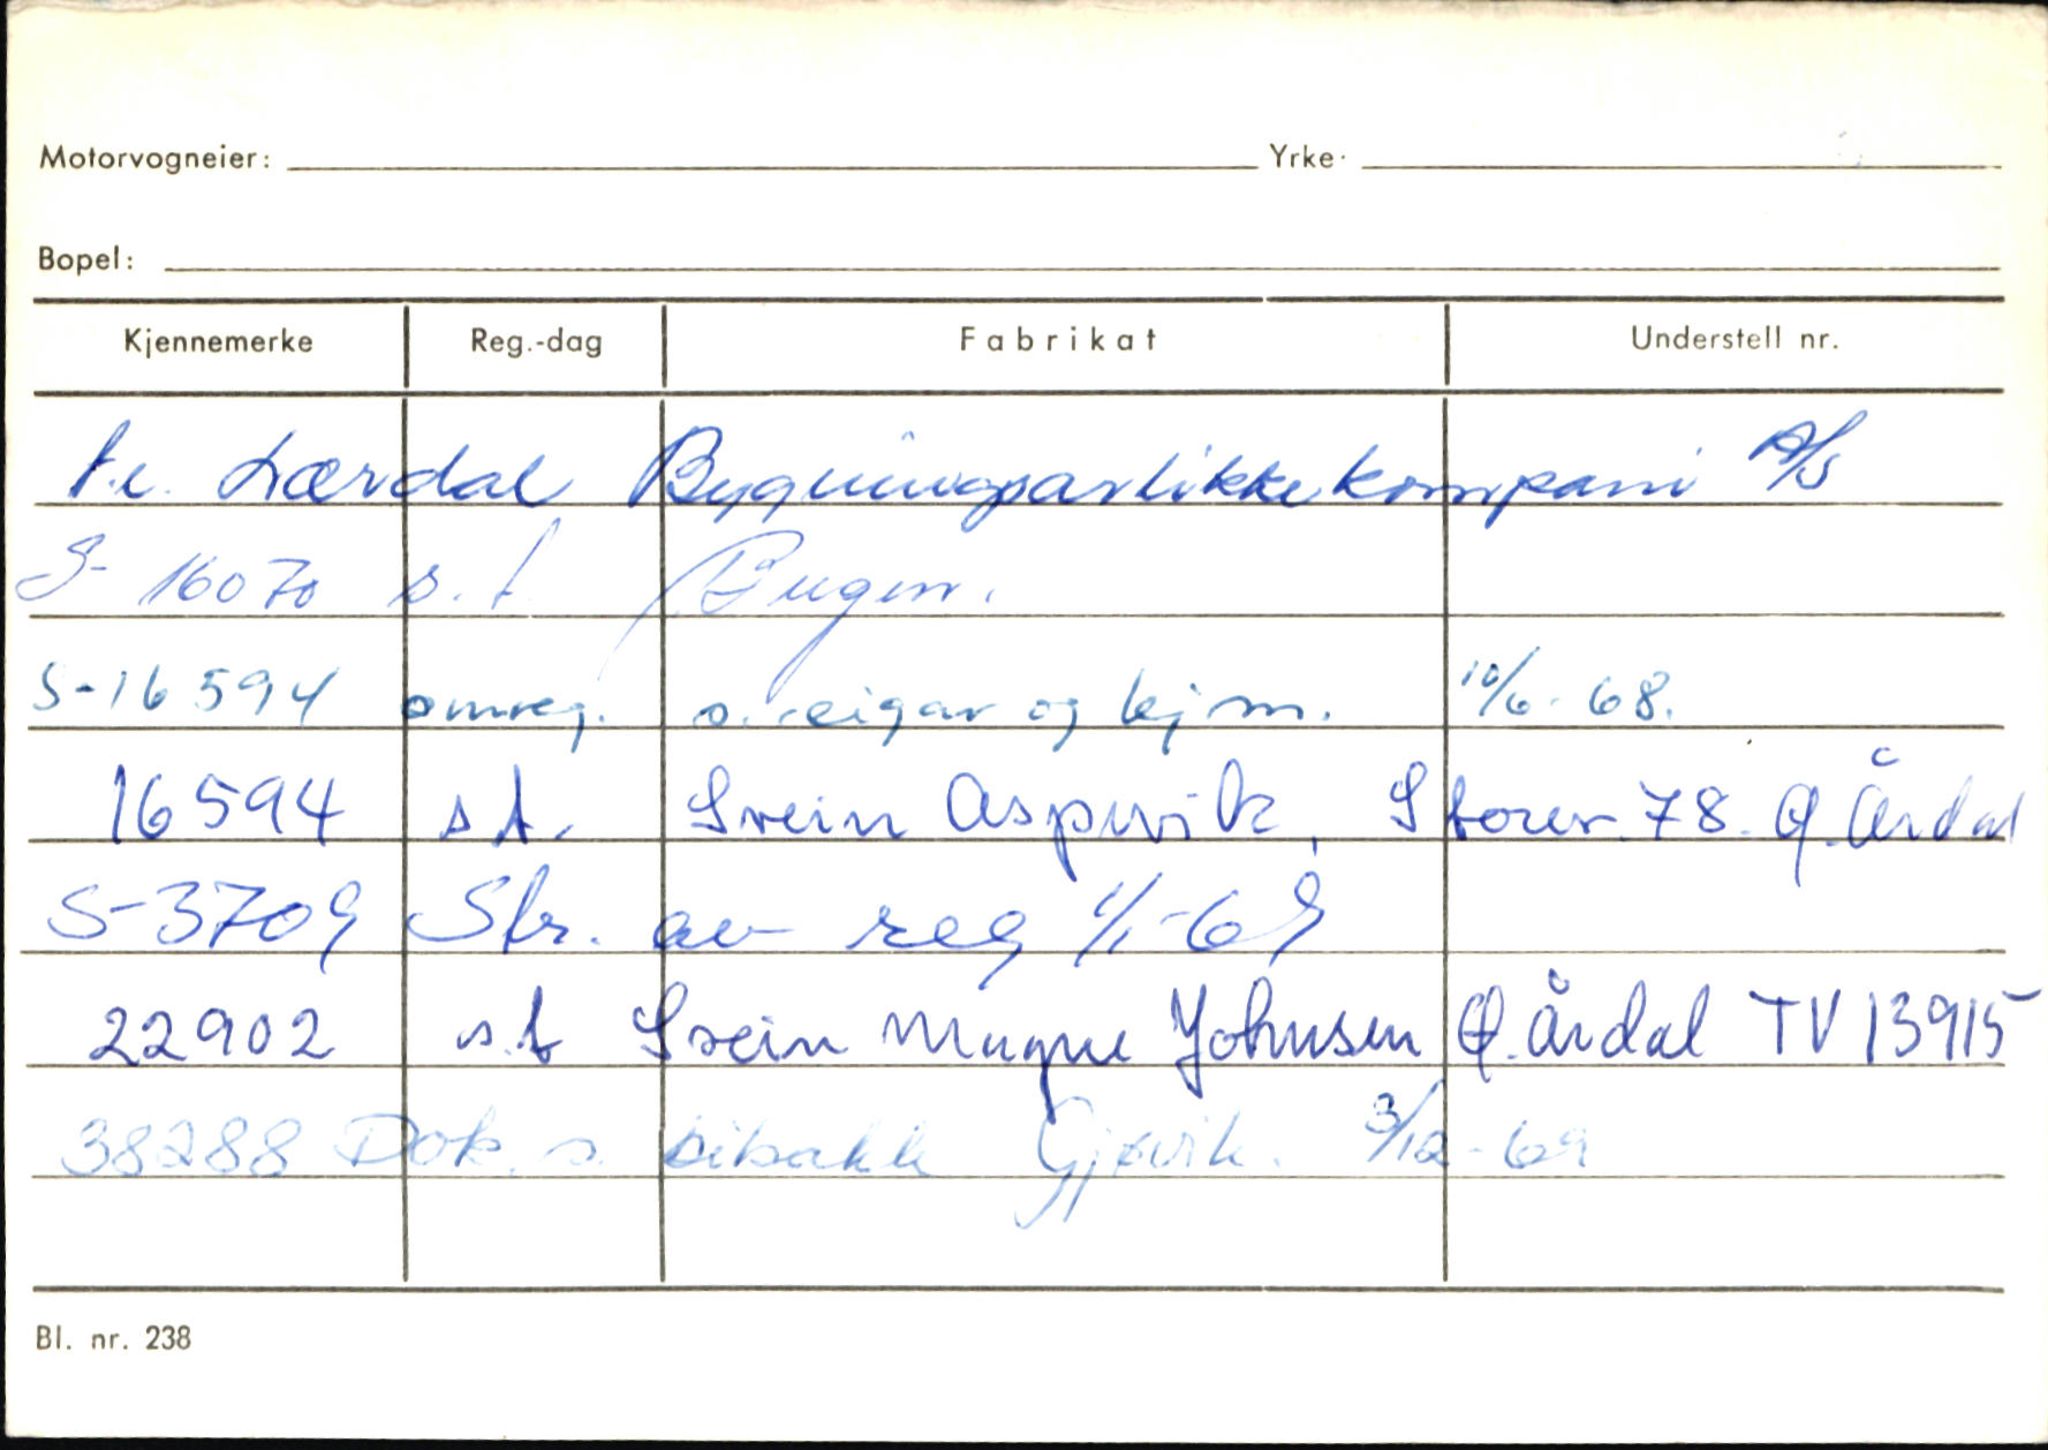 Motorvogneier: Yrke.
Bopel:
Kjennemerke Reg.-dag Fabrikat Understell nr.
Lærdal Bygningsartikkekompani A/S
S-16070 s.t.
S-16594 omreg. s. eigar og kjm. 10/6-68.
16594 s.t. Svein Aspevik, Storev. 78. Ø. Årdal
S-3709 Str. av reg 1/1-69
22902 s.t Svein Magne Johnsen Ø. Årdal TV 13915
38288 Dok. s. bilsakk Gjøvik. 3/12-69
Bl. nr. 238